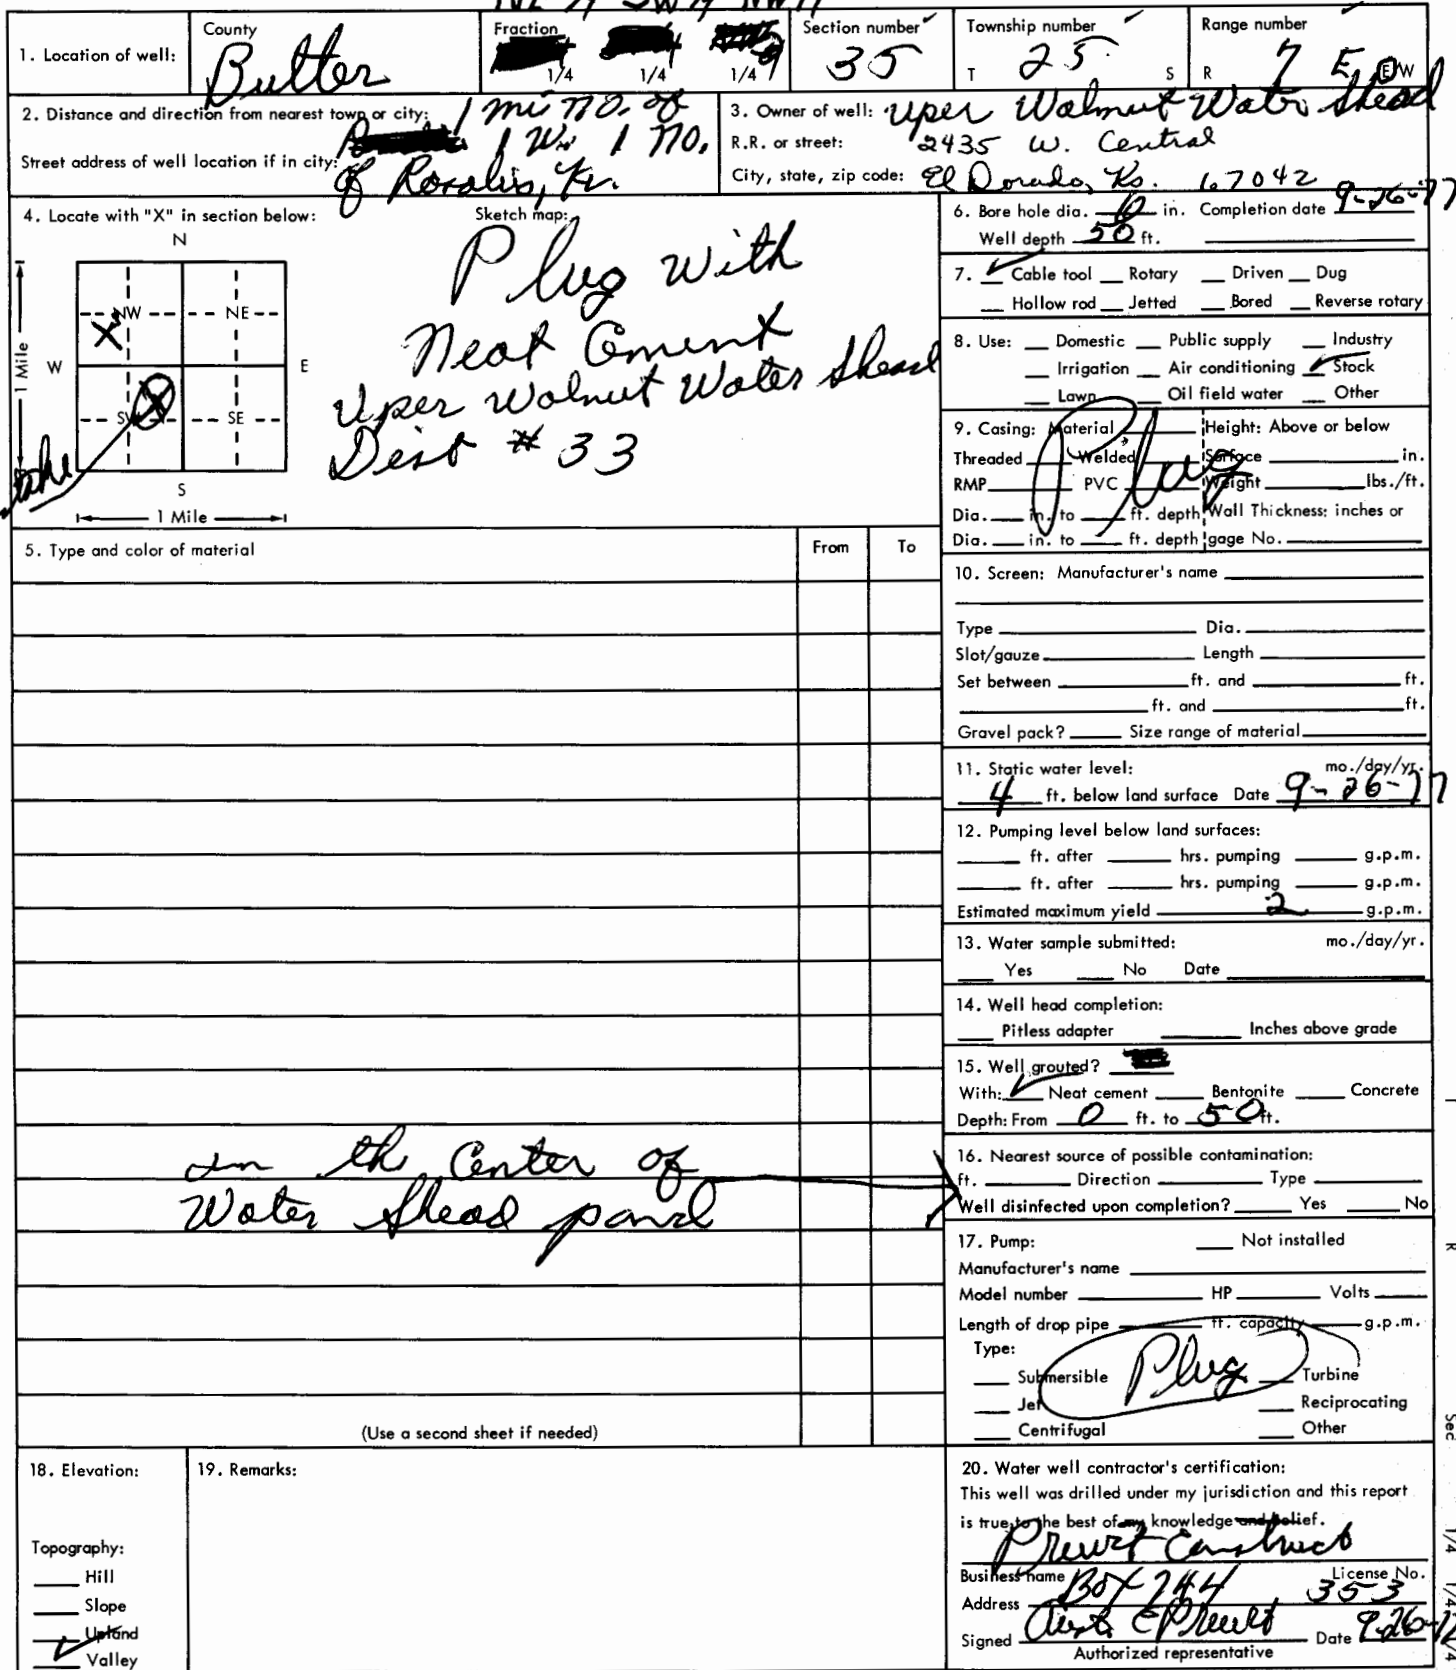 NE 1/4 SW 1/4 NW 1/4
1. Location of well:
County
Butler
Fraction
1/4 1/4 1/4
Section number
35
Township number
T 25 S
Range number
R 7 E E/W
2. Distance and direction from nearest town or city: 1 mi no. of
1 W. 1 no.
Street address of well location if in city:
of Rosalia, Ks.
3. Owner of well: Uper Walnut Water Shead
R.R. or street: 2435 W. Central
City, state, zip code: El Dorado, Ks. 67042
4. Locate with "X" in section below:
N
NW NE
W E
SW SE
S
1 Mile
1 Mile
Sketch map:
Plug With
Neat Cement
Uper Walnut Water Shead
Dist # 33
5. Type and color of material From To
In th Center of
Water Shead pond
(Use a second sheet if needed)
6. Bore hole dia. 6 in. Completion date 9-26-77
Well depth 50 ft.
7. ✓ Cable tool Rotary Driven Dug
Hollow rod Jetted Bored Reverse rotary
8. Use: Domestic Public supply Industry
Irrigation Air conditioning ✓ Stock
Lawn Oil field water Other
9. Casing: Material Height: Above or below
Threaded Welded Surface in.
RMP PVC Weight lbs./ft.
Dia. in. to ft. depth Wall Thickness: inches or
Dia. in. to ft. depth gage No.
Plug
10. Screen: Manufacturer's name
Type Dia.
Slot/gauze Length
Set between ft. and ft.
ft. and ft.
Gravel pack? Size range of material
11. Static water level: mo./day/yr.
4 ft. below land surface Date 9-26-77
12. Pumping level below land surfaces:
ft. after hrs. pumping g.p.m.
ft. after hrs. pumping g.p.m.
Estimated maximum yield 2 g.p.m.
13. Water sample submitted: mo./day/yr.
Yes No Date
14. Well head completion:
Pitless adapter Inches above grade
15. Well grouted?
With: ✓ Neat cement Bentonite Concrete
Depth: From 0 ft. to 50 ft.
16. Nearest source of possible contamination:
ft. Direction Type
Well disinfected upon completion? Yes No
17. Pump: Not installed
Manufacturer's name
Model number HP Volts
Length of drop pipe ft. capacity g.p.m.
Type:
Submersible Turbine
Jet Reciprocating
Centrifugal Other
Plug
18. Elevation:
Topography:
Hill
Slope
Upland
✓ Valley
19. Remarks:
20. Water well contractor's certification:
This well was drilled under my jurisdiction and this report
is true to the best of my knowledge and belief.
Prewit Construct
Business name License No.
Address Box 744 353
Signed Prewitt Date 9-26-77
Authorized representative
T
R
Sec
1/4 1/4 1/4